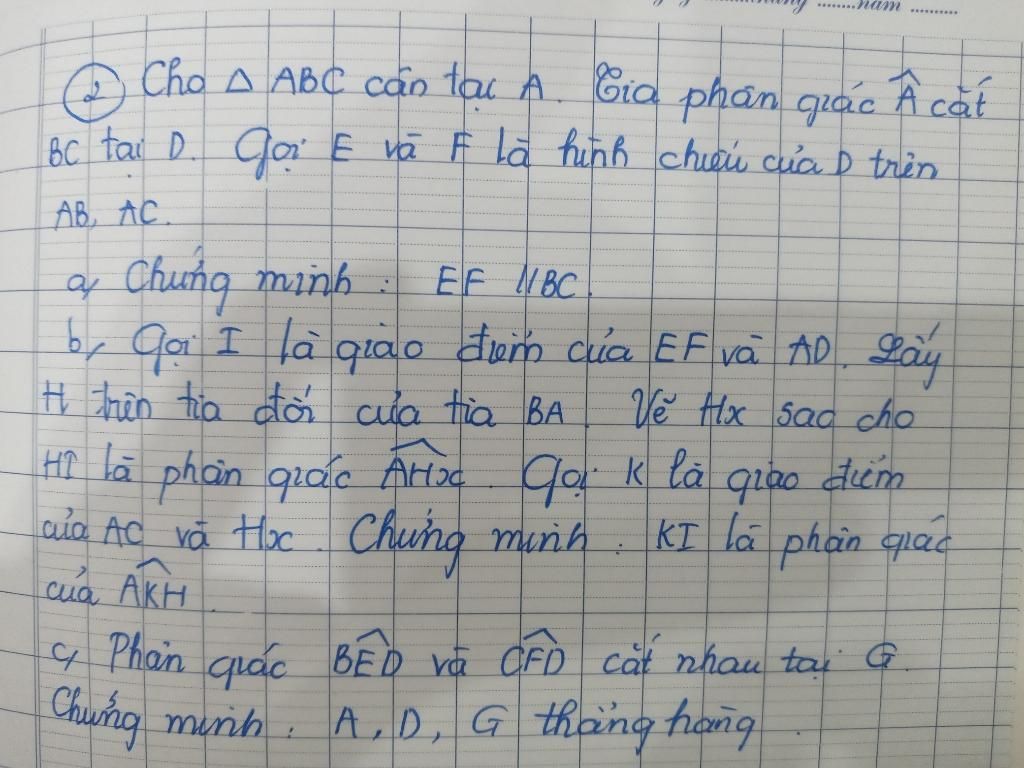 ........năm ..........
② Cho △ ABC cân tại A. Tia phân giác Â cắt
BC tại D. Gọi E và F là hình chiếu của D trên
AB, AC.
a, Chứng minh : EF // BC.
b, Gọi I là giao điểm của EF và AD. Lấy
H trên tia đối của tia BA. Vẽ Hx sao cho
HI là phân giác \widehat{AHx}. Gọi K là giao điểm
của AC và Hx. Chứng minh : KI là phân giác
của \widehat{AKH}.
c, Phân giác \widehat{BED} và \widehat{CFD} cắt nhau tại G.
Chứng minh : A, D, G thẳng hàng.